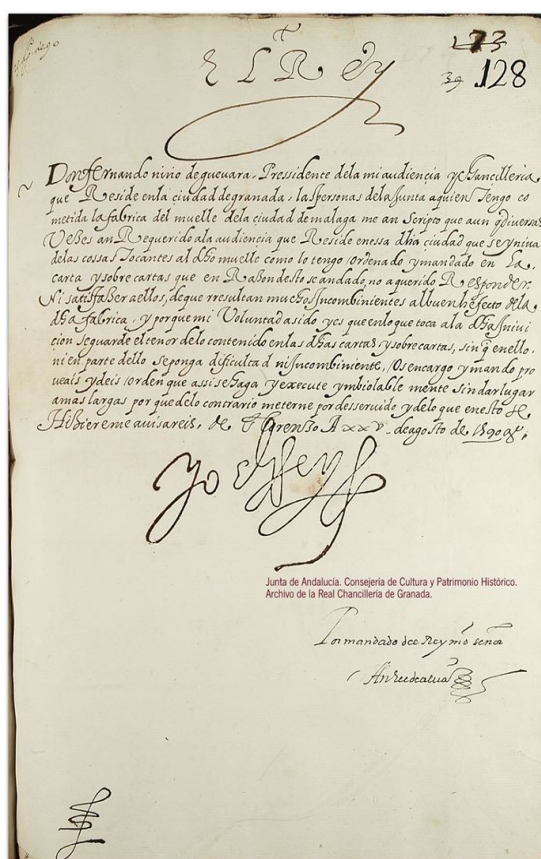 173
39 128
El Rey
Don fernando niño de gueuara. Pressidente dela mi audiencia y chancilleria
que Reside enla ciudad degranada, las personas dela Junta aquien Tengo co
metida la fabrica del muelle dela ciudad de malaga me an scripto que aun q̃ diversas
Vezes an Requerido ala audiencia que Reside enessa dha ciudad que se yniua
delas cossas Tocantes al dho muelle como lo tengo ordenado y mandado en la
carta y sobre cartas que en Razon desto se an dado, no a querido Responder
Ni satisfazer a ellos, de que rresultan muchos Incombinientes al buen hefecto dela
dha fabrica, y porque mi Voluntad a sido y es que enlo que toca ala dha Iniui
cion se guarde el tenor delo contenido enlas dhas cartas y sobre cartas, sin q̃ enello
ni en parte dello se ponga dificultad ni Incombiniente, Os encargo y mando pro
veais y deis orden que assi se haga y execute ymbiolable mente sin dar lugar
a mas largas por que delo contrario me terne por desseruido y delo que enesto se
Hiziere me auisareis, de S. Lorenzo A xxv de agosto de 1590 as.
yo el Rey
Junta de Andalucía. Consejería de Cultura y Patrimonio Histórico.
Archivo de la Real Chancillería de Granada.
Por mandado del Rey nro señor
Andres de alua